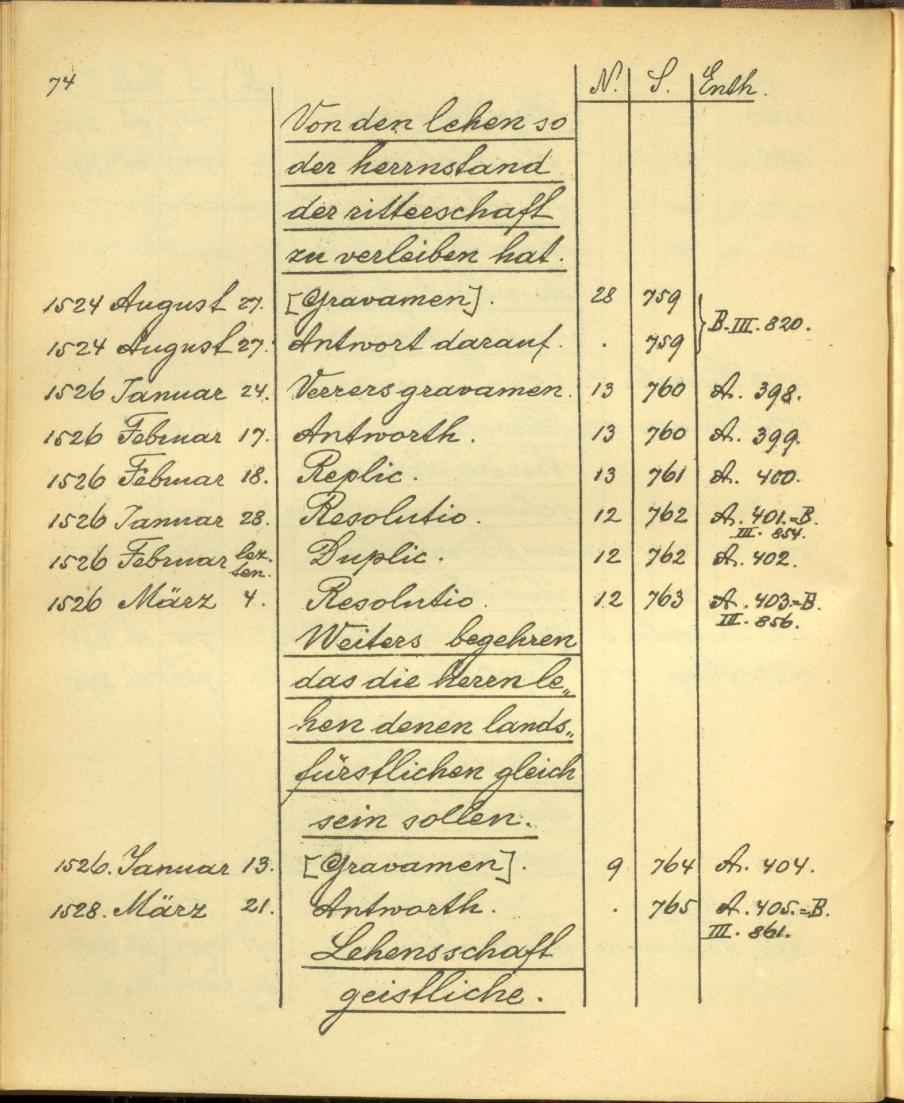 74 N. S. Enth.
Von den lehen so
der herrnstand
der ritterschaft
zu verleihen hat.
1524 August 27. [Gravamen]. 28 759
B. III. 820.
1524 August 27. Antwort darauf. . 759
1526 Januar 24. Verrers gravamen. 13 760 A. 398.
1526 Februar 17. Antworth. 13 760 A. 399.
1526 Februar 18. Replic. 13 761 A. 400.
1526 Januar 28. Resolutio. 12 762 A. 401.=B.
III. 854.
1526 Februar lez- Duplic. 12 762 A. 402.
ten.
1526 März 4. Resolutio. 12 763 A. 403=B.
III. 856.
Weiters begehren
das die herrn le„
hen denen lands„
fürstlichen gleich
sein sollen.
1526. Januar 13. [Gravamen]. 9 764 A. 404.
1528. März 21. Antworth. . 765 A. 405.=B.
III. 861.
Lehensschaft
geistliche.